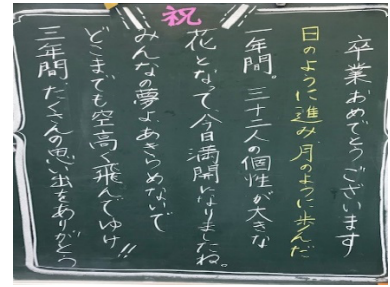 祝
卒業おめでとうございます
日のように進み月のように歩んだ
一年間。三十二人の個性が大きな
花となって、今日満開になりましたね。
みんなの夢よ、あきらめないで
どこまでも空高く飛んでゆけ!!
三年間たくさんの思い出をありがとう